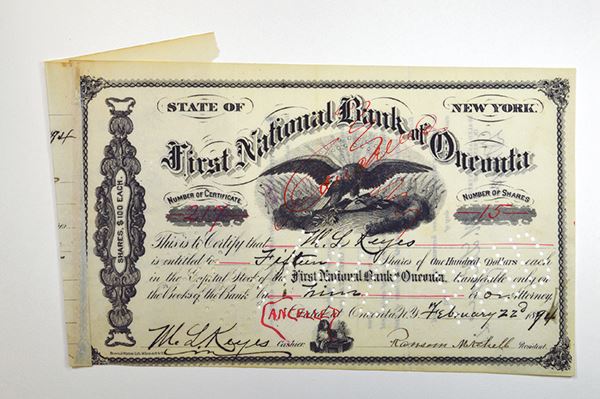 STATE OF NEW YORK.
First National Bank of Oneonta
NUMBER OF CERTIFICATE
NUMBER OF SHARES
15
SHARES, $100 EACH.
94
Cancelled
This is to Certify that M. L. Keyes
is entitled to Fifteen Shares of One Hundred Dollars each
in the Capital Stock of the First National Bank of Oneonta. transferable only on
the books of the Bank by him or Attorney.
CANCELLED
Oneonta N.Y. February 22d 1894
M. L. Keyes Cashier
Ransom Mitchell President.